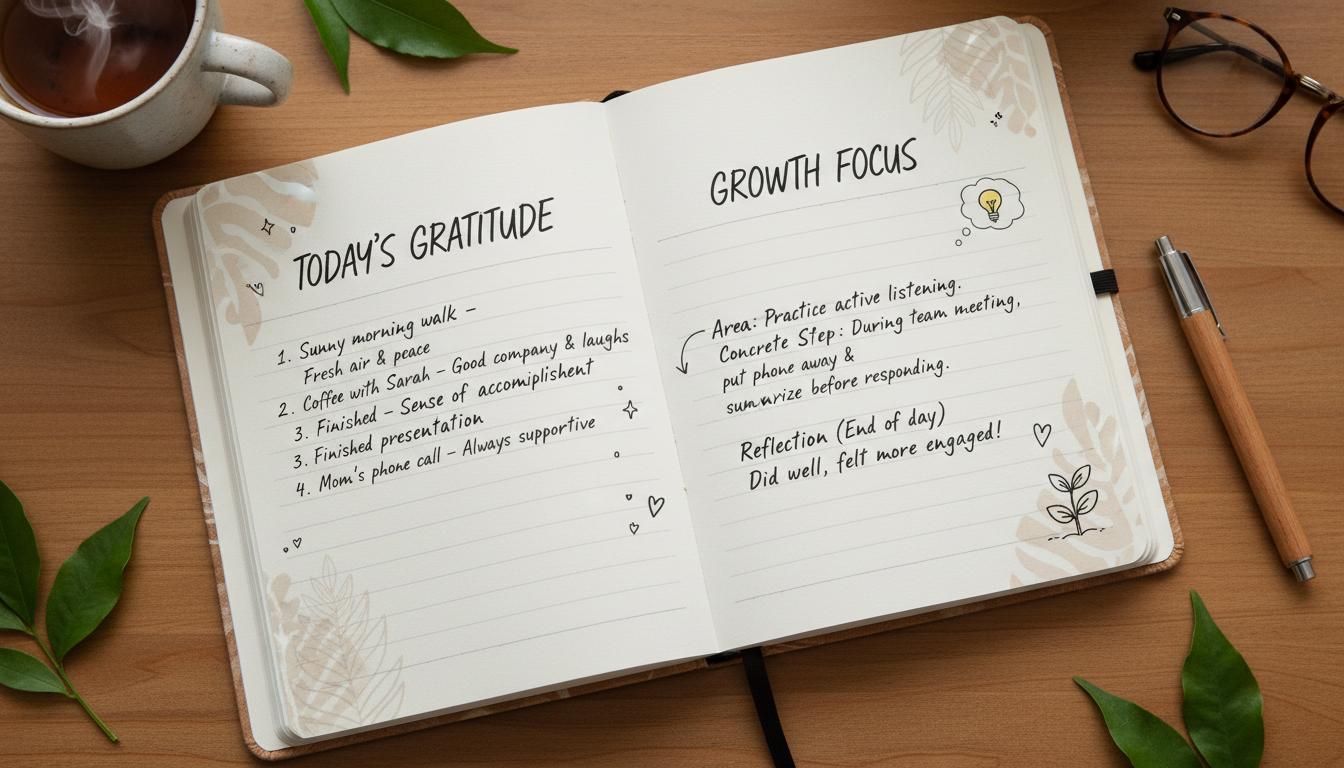 TODAY'S GRATITUDE
1. Sunny morning walk –
Fresh air & peace
2. Coffee with Sarah – Good company & laughs
3. Finished – Sense of accomiplishent
3. Finished presentation
4. Mom's phone call – Always supportive
GROWTH FOCUS
Area: Practice active listening.
Concrete Step: During team meeting,
put phone away &
summarize before responding.
Reflection (End of day)
Did well, felt more engaged!